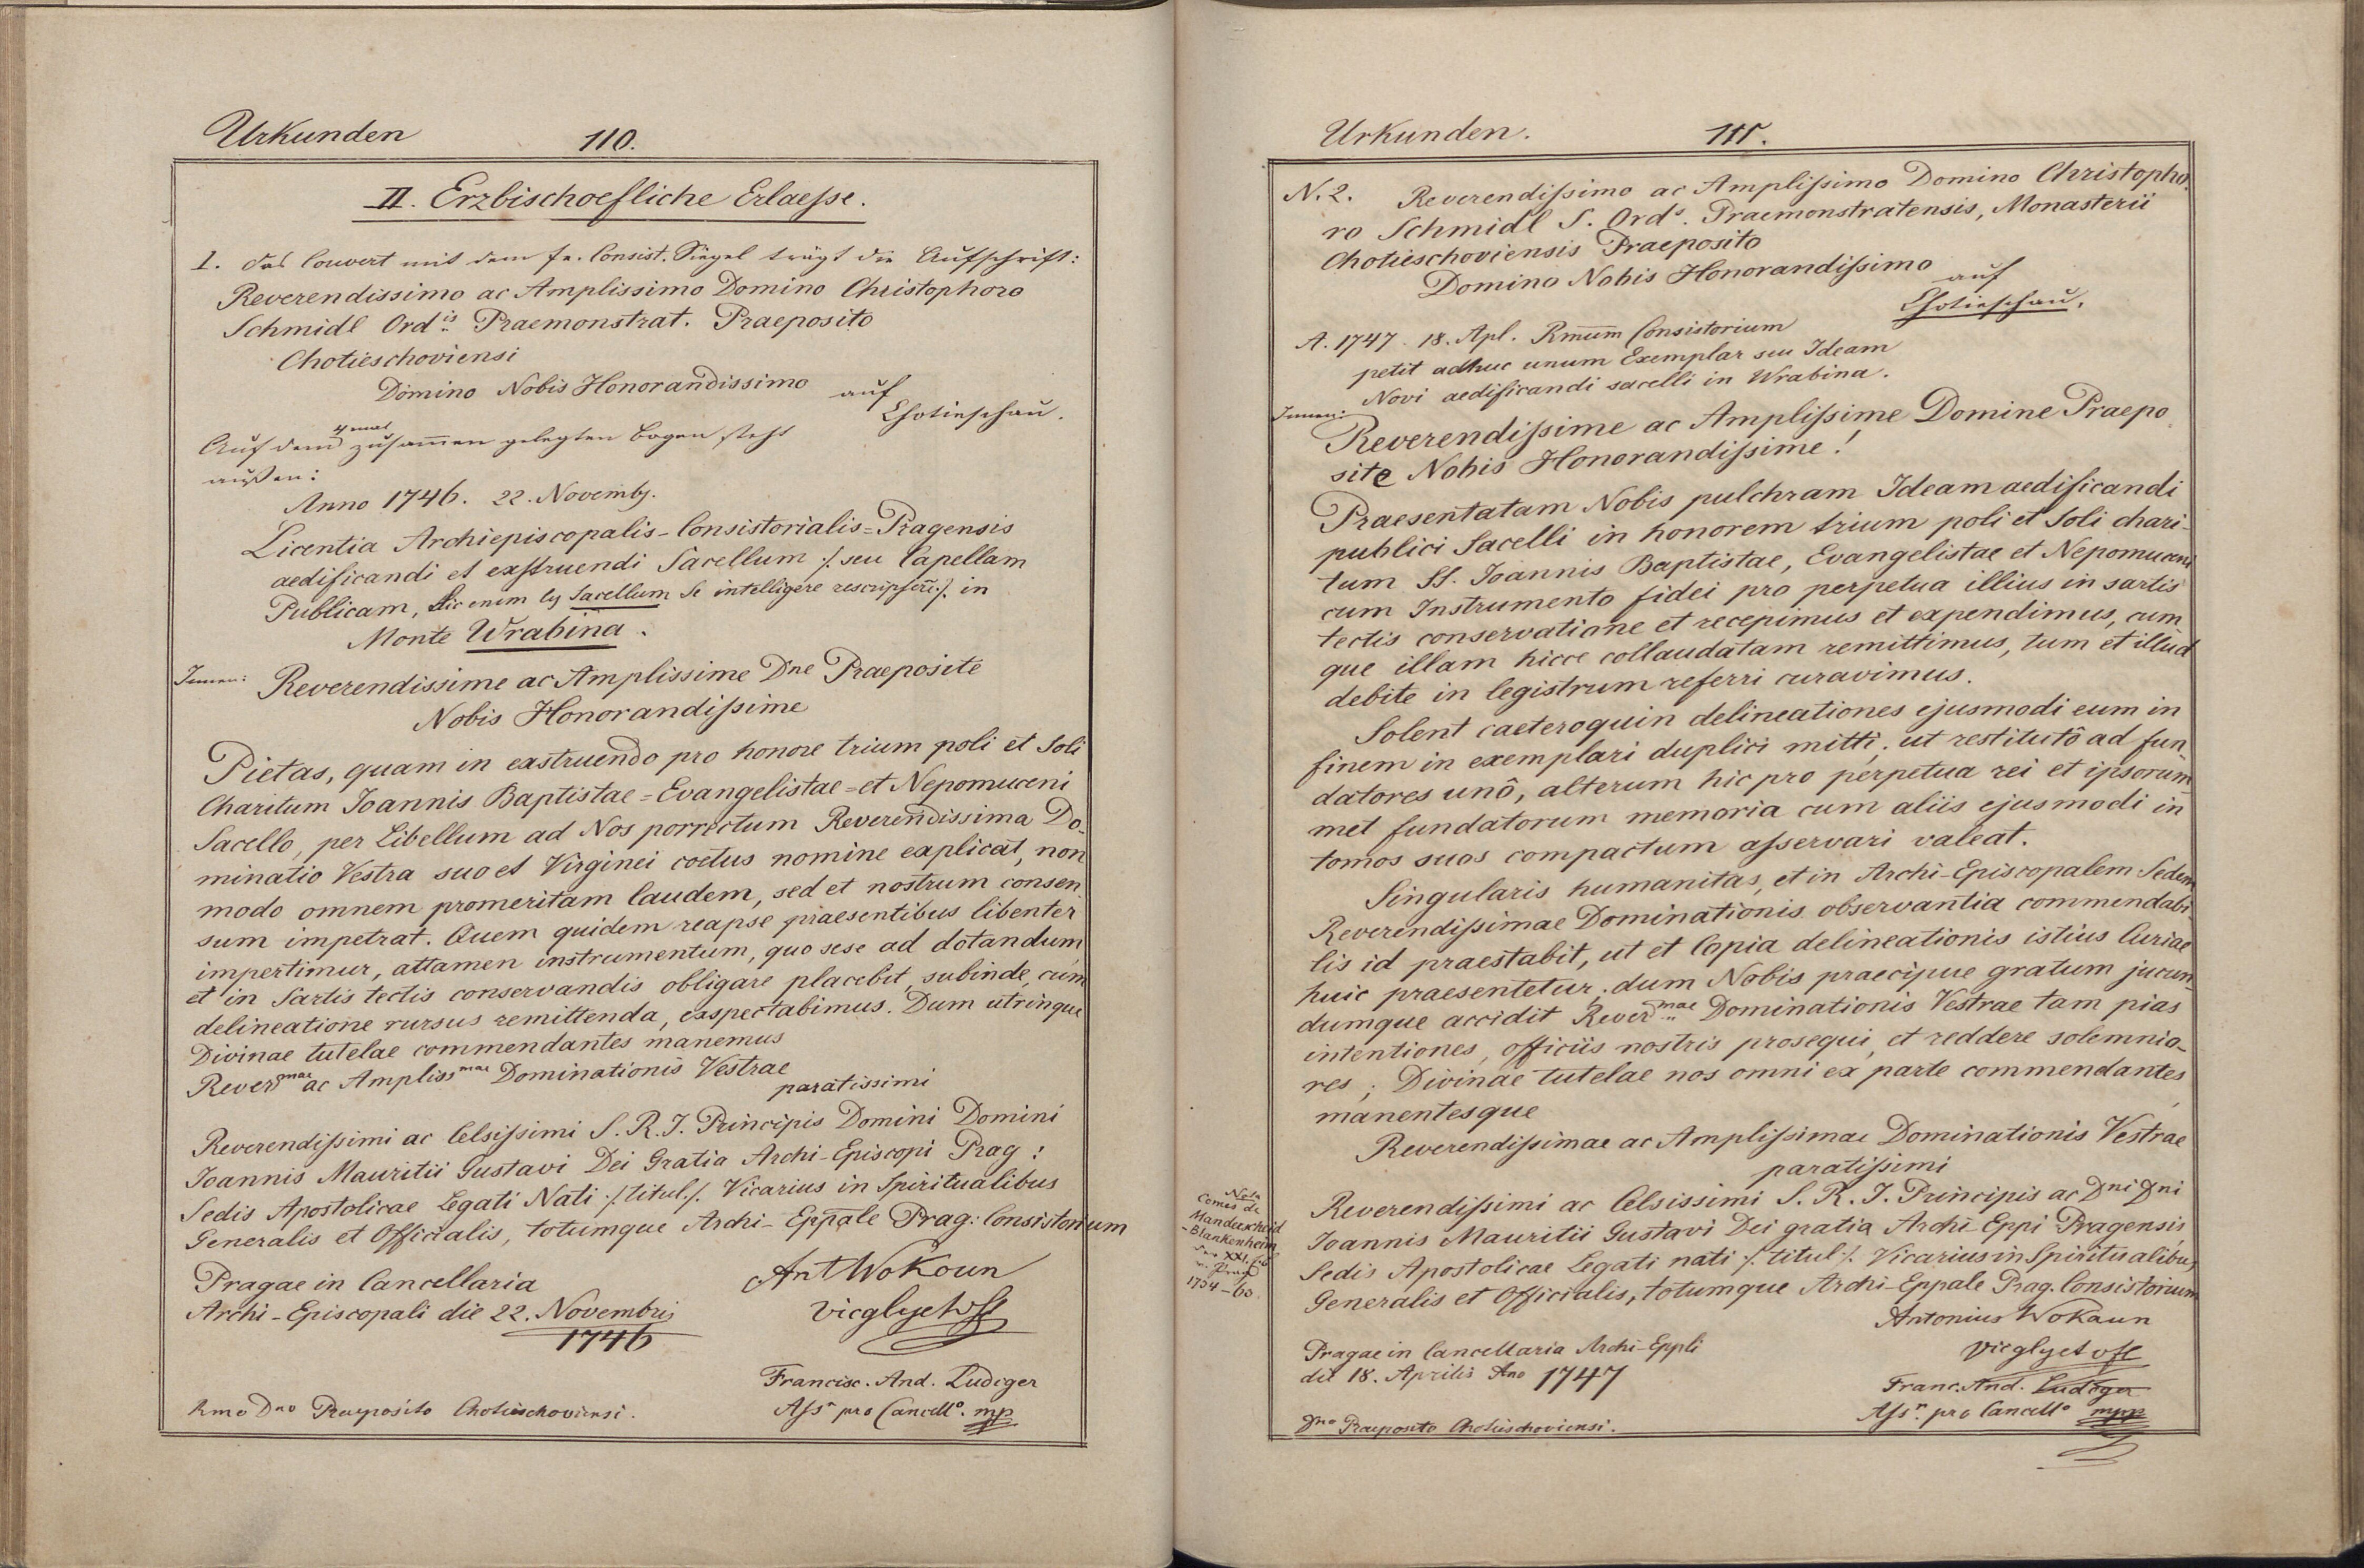 Urkunden 110.
II. Erzbischoefliche Erlaesse.
1. Das Couvert mit dem fe. Consist. Siegel trägt die Aufschrift:
Reverendissimo ac Amplissimo Domino Christophoro
Schmidl Ord:is Praemonstrat. Praeposito
Chotieschoviensi
Domino Nobis Honorandissimo auf
Chotieschau.
Auf dem 4mal zusamen gelegten Bogen steht
außen:
Anno 1746. 22. Novembr.
Licentia Archiepiscopalis-Consistorialis=Pragensis
aedificandi et exstruendi Sacellum ./. seu Capellam
Publicam, sic enim ly Sacellum se intelligere rescripsere ./. in
Monte Wrabina.
Innen: Reverendissime ac Amplissime Dne Praeposite
Nobis Honorandissime
Pietas, quam in exstruendo pro honore trium poli et soli
Charitum Joannis Baptistae=Evangelistae=et Nepomuceni
Sacello, per Libellum ad Nos porrectum Reverendissima Do-
minatio Vestra suo et Virginei coetus nomine explicat, non
modo omnem promeritam laudem, sed et nostrum consen
sum impetrat. Quem quidem reapse praesentibus libenter
impertimur, attamen instrumentum, quo sese ad dotandum
et in Sartis tectis conservandis obligare placebit, subinde, cum
delineatione rursus remittenda, exspectabimus. Dum utrinque
Divinae tutelae commendantes manemus
Reverdmae ac Ampliss mae Dominationis Vestrae
paratissimi
Reverendissimi ac Celsissimi S. R. J. Principis Domini Domini
Joannis Mauritii Gustavi Dei Gratia Archi-Episcopi Prag:
Sedis Apostolicae Legati Nati ./. titul ./. Vicarius in Spiritualibus
Generalis et Officialis, totumque Archi-Eppale Prag: Consistorium
Pragae in Cancellaria Ant Wokoun
Archi-Episcopali die 22. Novembris Vicglyetofl
1746
Francisc. And. Ludiger
Rmo Dno Praeposito Chotieschoviensi. Assr pro Cancello. mp
Urkunden. 111.
N. 2. Reverendissimo ac Amplissimo Domino Christopho-
ro Schmidl S. Ords. Praemonstratensis, Monasterii
Chotieschoviensis Praeposito
Domino Nobis Honorandissimo auf
Chotieschau.
A. 1747. 18. Apl. Rmum Consistorium
petit adhuc unum Exemplar seu Ideam
Novi aedificandi sacelli in Wrabina.
Innen:
Reverendissime ac Amplissime Domine Praepo
site Nobis Honorandissime!
Praesentatam Nobis pulchram Ideam aedificandi
publici Sacelli in honorem trium poli et soli chari-
tum SS. Joannis Baptistae, Evangelistae et Nepomuceni
cum Instrumento fidei pro perpetua illius in sartis
tectis conservatione et recepimus et expendimus, cum
que illam hicce collaudatam remittimus, tum et illud
debite in legistrum referri curavimus.
Solent caeteroquin delineationes ejusmodi eum in
finem in exemplari duplici mitti, ut restitutô ad fun
datores unô, alterum hic pro perpetua rei et ipsorum
met fundatorum memoria cum aliis ejusmodi in
tomos suos compactum asservari valeat.
Singularis humanitas, et in Archi-Episcopalem Sedem
Reverendissimae Dominationis observantia commendabi
lis id praestabit, ut et Copia delineationis istius Curiae
huic praesentetur; dum Nobis praecipue gratum jucun-
dumque accidit Reverdmae Dominationis Vestrae tam pias
intentiones, officiis nostris prosequi, et reddere solemnio-
res; Divinae tutelae nos omni ex parte commendantes
manentesque
Reverendissimae ac Amplissimae Dominationis Vestrae
paratissimi
Reverendissimi ac Celsissimi S. R. J. Principis ac Dni Dni
Joannis Mauritii Gustavi Dei gratia Archi-Eppi Pragensis
Sedis Apostolicae Legati nati ./. titul ./. Vicarius in Spiritualibus
Generalis et Officialis, totumque Archi-Eppale Prag. Consistorium
Nota
Comes de
Manderscheid
-Blankenheim
XXI.
v. Prag
1734-63
Antonius Wokaun
Pragae in Cancellaria Archi-Eppli Vicglyet ofl
die 18. Aprilis Ano 1747
Franc. And. Ludiger
Assr. pro Cancello mpp
Dno Praeposito Chotieschoviensi.